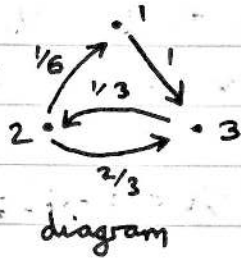 1
1/6
1/3
1
2
3
2/3
diagram